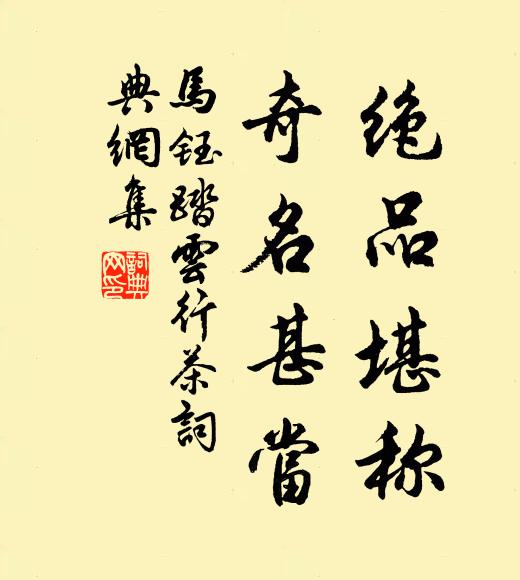 绝品堪称
奇名甚當
馬鈺踏雲行茶詞
典網集
詞典
网印